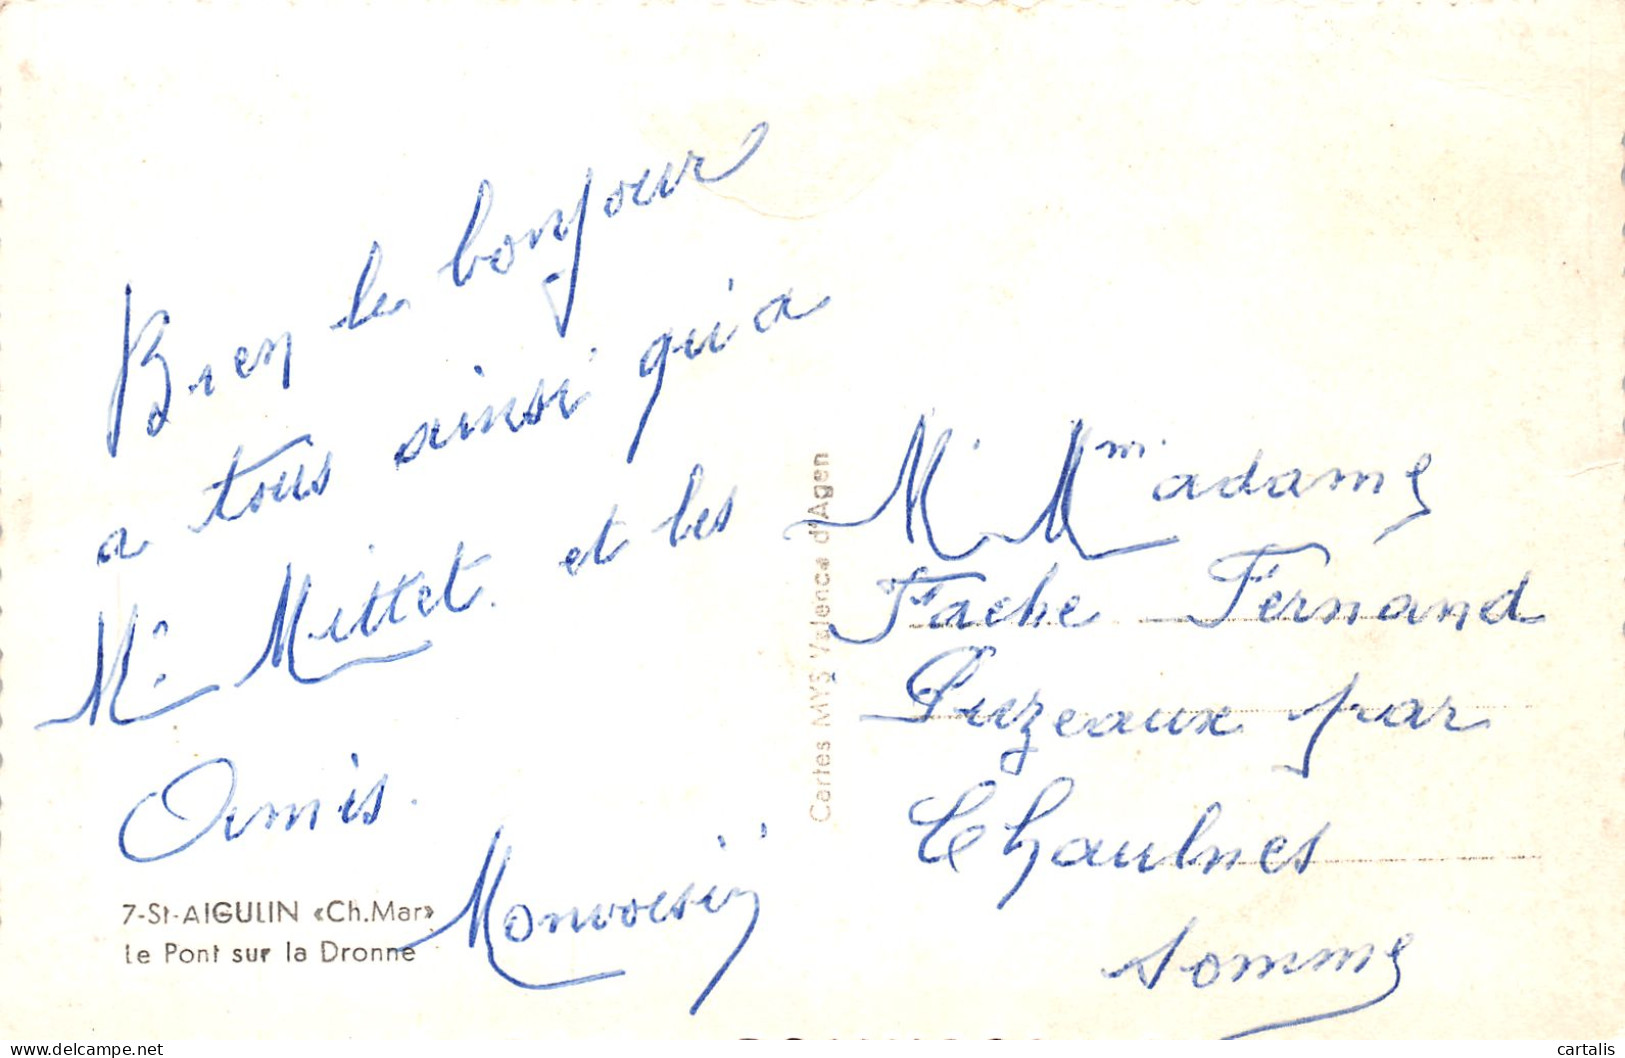 Bien le bonjour
a tous ainsi qu'a
Mr Mittet. et les
Amis.
Monvoisin
7-St-AIGULIN «Ch.Mar»
Le Pont sur la Dronne
Cartes MYS Valence d'Agen
Mr Madame
Fache Fernand
Puzeaux par
Chaulnes
Somme
cartalis
www.delcampe.net